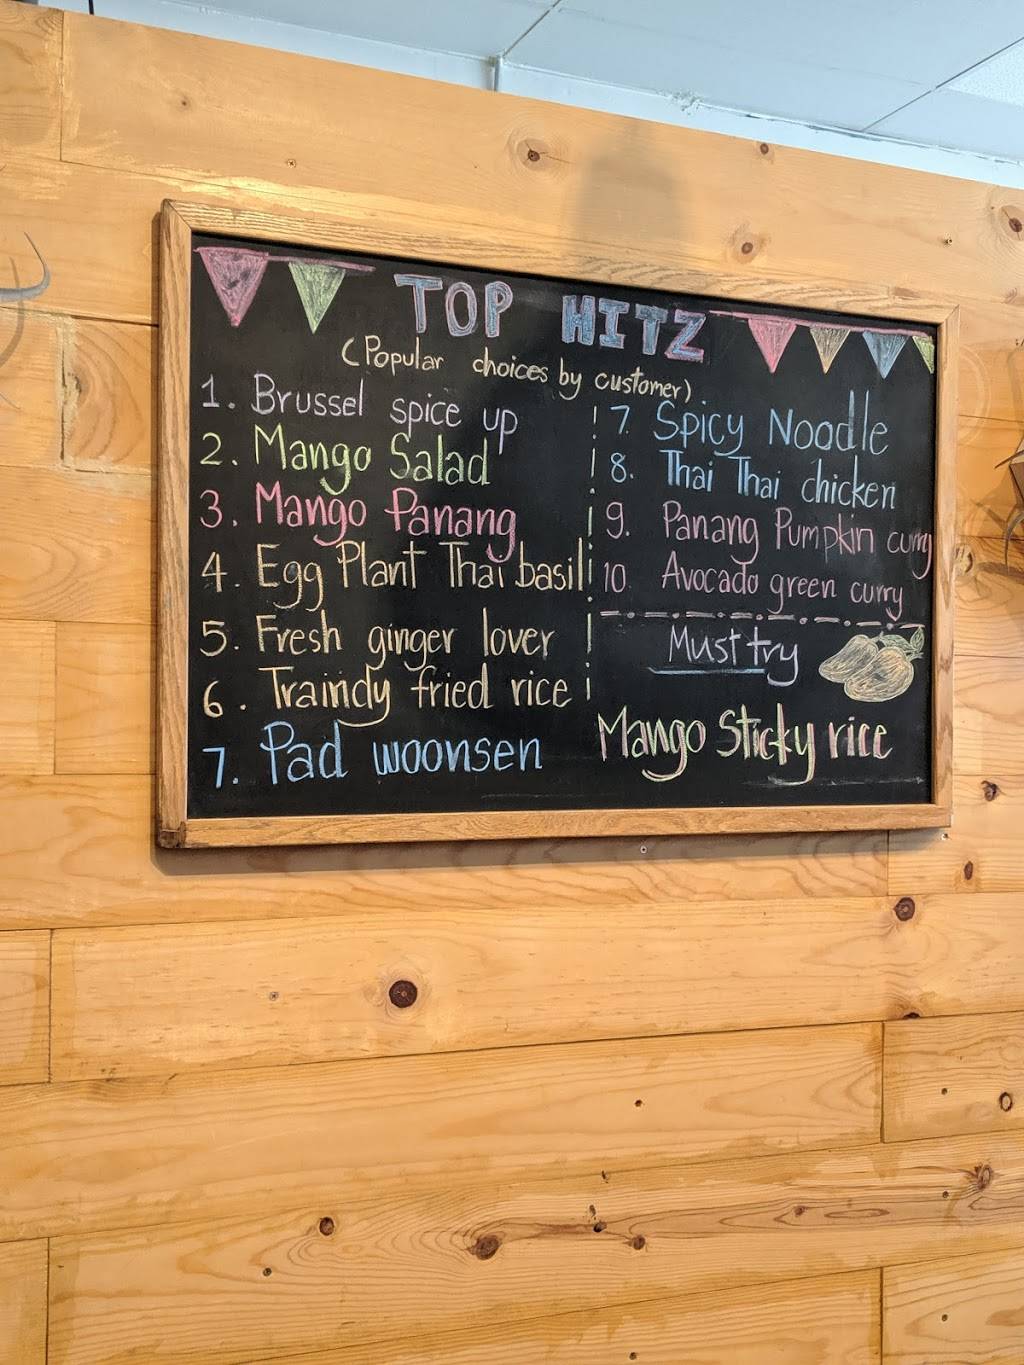 TOP HITZ
(Popular choices by customer)
1. Brussel spice up
2. Mango Salad
3. Mango Panang
4. Egg Plant Thai basil
5. Fresh ginger lover
6. Traindy fried rice
7. Pad woonsen
7. Spicy Noodle
8. Thai Thai chicken
9. Panang Pumpkin curry
10. Avocado green curry
Must try
Mango Sticky rice